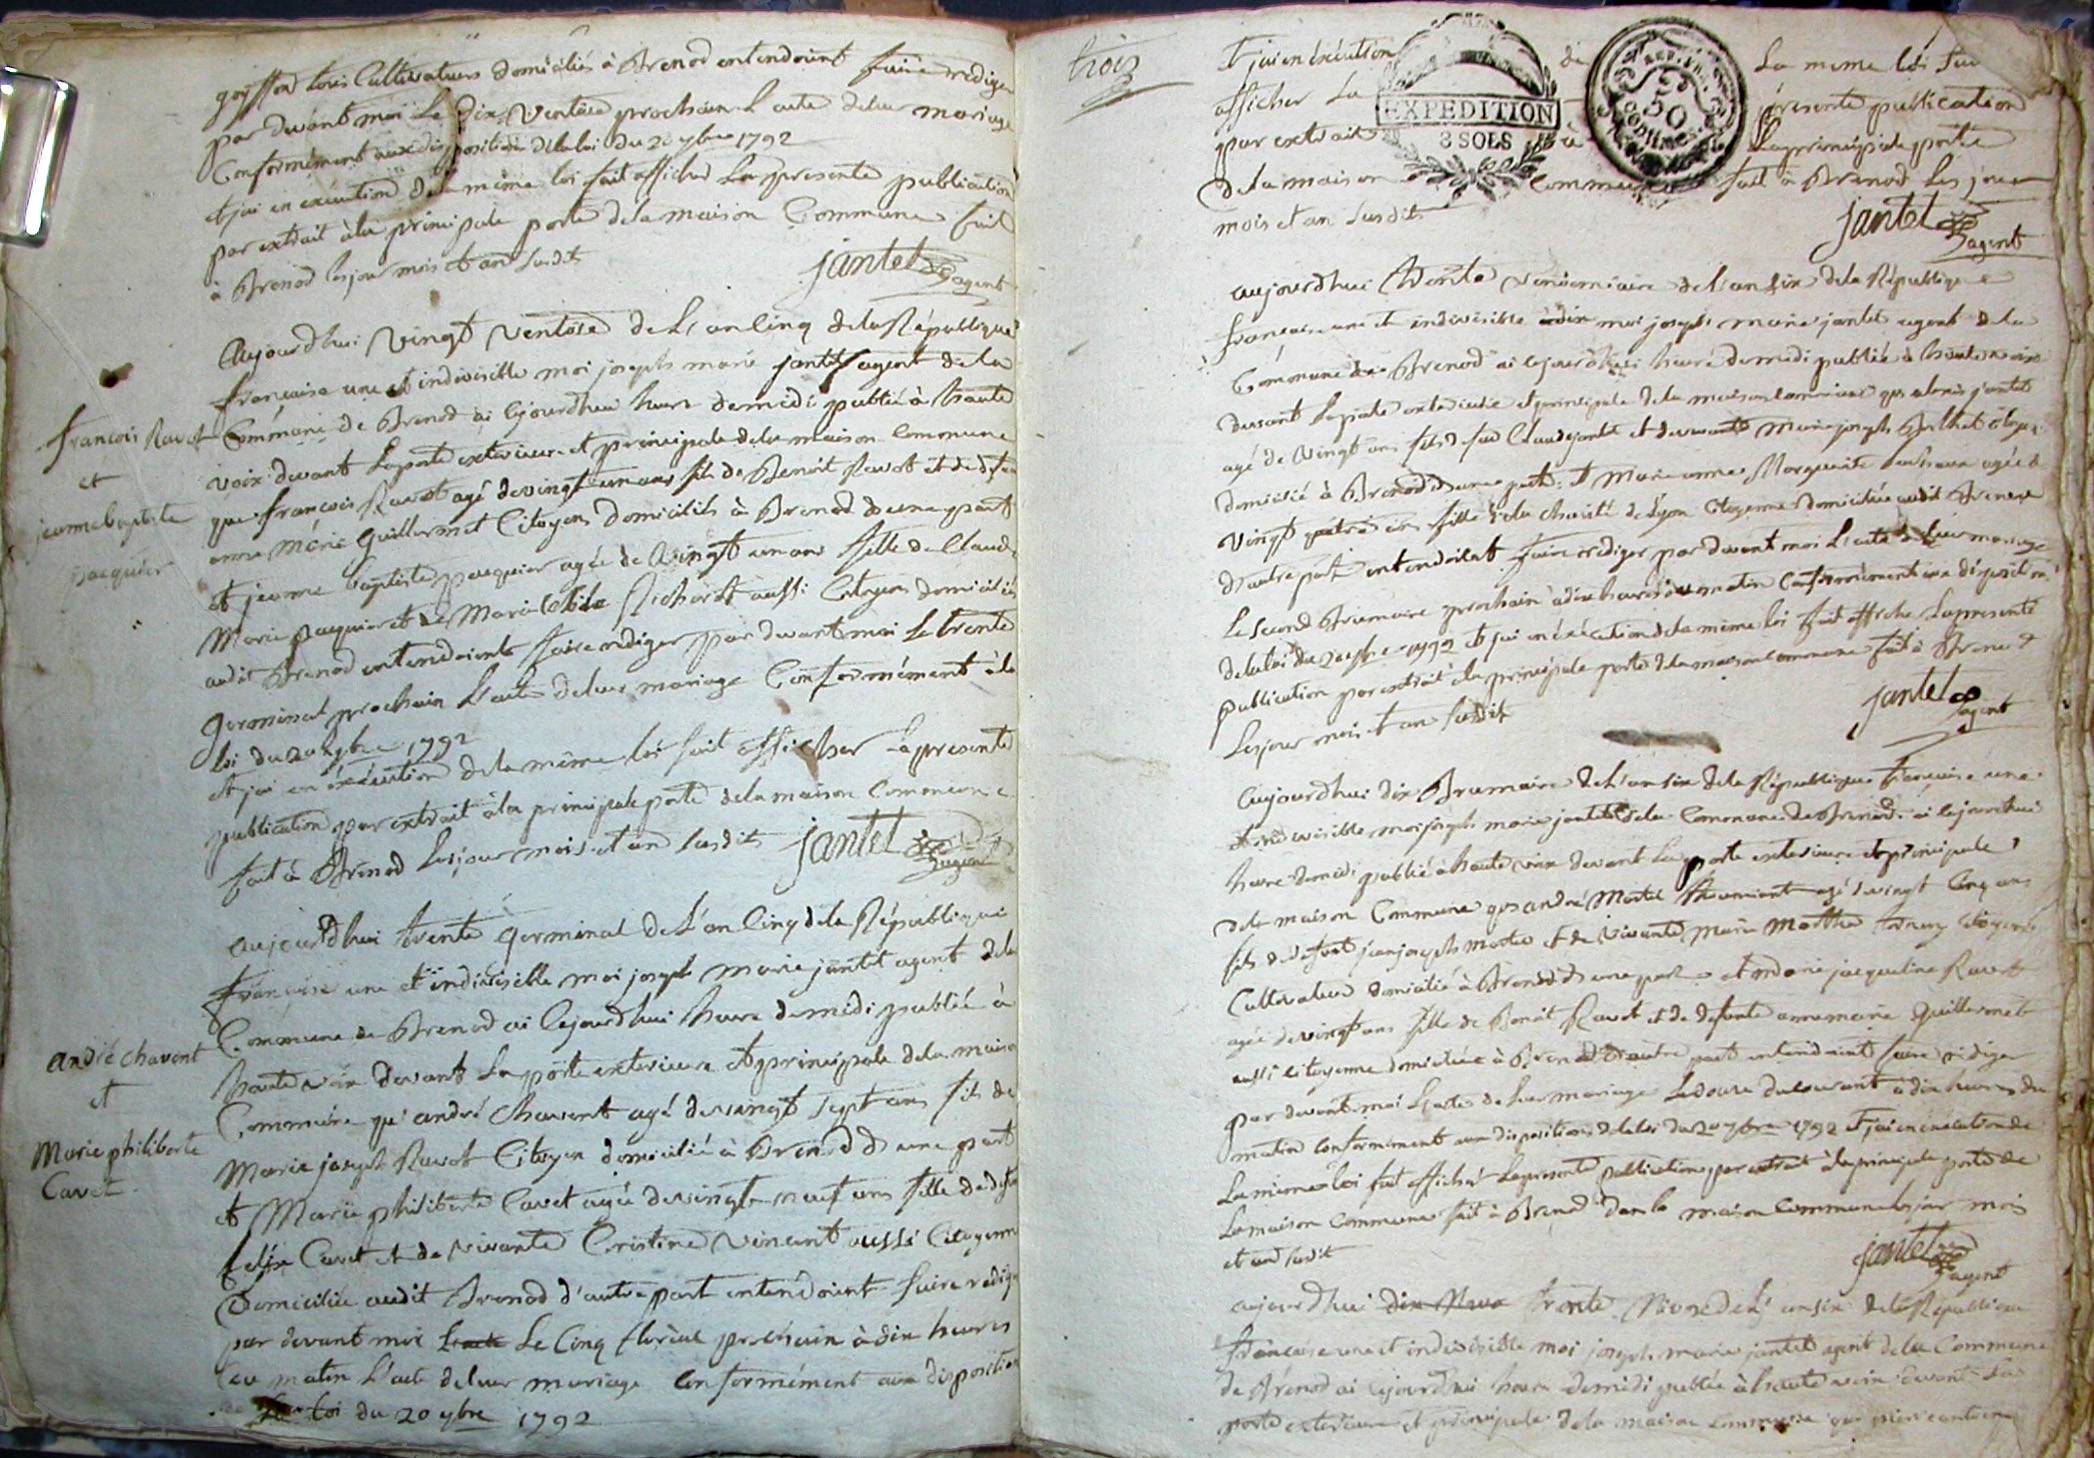 goyffon tous Cultivateurs domiciliés à Brenod entendoient faire rediger
par devant moi Le dix Ventose prochain L'acte de leur mariage
Conformément aux disposition de la loi du 20 7bre 1792
et jai en execution de la même loi fait afficher La presente publication
par extrait à la principale porte de la maison Commune fait
à Brenod les jour mois et an susdit
jantet agent
Aujourdhui Vingt Ventose de L'an Cinq de la République
françaisse une et indivisible moi joseph marie jantet agent de la
Commune de Brenod ai cejourdhui heure de midi publié à haute
voix devant La porte exterieure et principale de la maison Commune
que francois Ravot agé de vingt un ans fils de Benoit Ravot et de defunte
anne Marie Guillermet Citoyens domiciliés à Brenod d'une part
et jeanne Baptiste pacquier agée de Vingt un ans fille de Claude
Marie pacquier et de Marie Richard aussi Citoyens domiciliés
audit Brenod entendoient faire rediger par devant moi Le trente
Germinal prochain L'acte de leur mariage Conformément à la
loi du 20 7bre 1792
et jai en éxécution de la même loi fait afficher La presente
publication par extrait à la principale porte de la maison Commune
fait à Brenod Les jour mois et an susdits jantet agent
francois Ravot
et
jeanne baptiste
pacquier
aujourdhui trente Germinal de L'an Cinq de la République
françaisse une et indivisible moi joseph marie jantet agent de la
Commune de Brenod ai Cejourdhui heure de midi publié à
haute voix devant La porte exterieure et principale de la maison
Commune que andré Chavent agé de vingt sept ans fils de
Marie joseph Ravot Citoyen domicilié à Brenod d'une part
et Marie philiberte Cavet agée de vingt neuf ans fille de defunt
felix Cavet et de vivante Cristine Vincent aussi Citoyenne
Domiciliée audit Brenod d'autre part entendoient faire rediger
par devant moi Le Cinq floréal prochain à dix heures
du matin L'acte de leur mariage Conformément aux disposition
de la loi du 20 7bre 1792
andré chavent
et
Marie philiberte
Cavet
trois
Et jai en éxécution de La même loi fait
afficher La présente publication
par extrait à La principale porte
de la maison Commune fait à Brenod les jour
mois et an susdits
EXPEDITION
3 SOLS
REP. FR.
50
Centimes
jantet agent
aujourdhui trente vendemiaire de l'an six de la République
française une et indivisible moi joseph marie jantet agent de la
Commune de Brenod ai cejourdhui heure de midi publié à haute voix
devant La porte exterieure et principale de la maison Commune que jantet
agé de Vingt ans fils de feu Claude jantet et de vivante Marie joseph citoyen
domicilié à Brenod d'une part et Marie anne Marguerite agée de
Vingt quatre ans fille de la charité de Lyon Citoyenne domiciliée audit Brenod
d'autre part entendoient faire rediger par devant moi L'acte de leur mariage
Le second Brumaire prochain à dix heures du matin Conformément aux disposition
de la loi du 20 7bre 1792 et jai en éxécution de la même loi fait afficher La presente
publication par extrait à la principale porte de la maison Commune fait à Brenod
Les jour mois et an susdit
jantet agent
aujourdhui dix Brumaire de L'an six de la République française une
et indivisible moi joseph marie jantet de la Commune de Brenod ai cejourdhui
heure de midi publié à haute voix devant La porte exterieure et principale
de la maison Commune que andré Martel agé de vingt Cinq ans
fils de defunt jean joseph martel et de Vivante Marie Marthe citoyens
Cultivateur domicilié à Brenod d'une part et marie jacqueline Ravot
agée de vingt ans fille de Benoit Ravot et de defunte anne marie Guillermet
aussi citoyenne domiciliée à Brenod d'autre part entendoient faire rediger
par devant moi L'acte de leur mariage Le douze du courant à dix heures du
matin Conformément aux disposition de la loi du 20 7bre 1792 Et jai en éxécution de
La même loi fait afficher La presente publication par extrait à la principale porte de
La maison Commune fait à Brenod dans la maison Commune les jour mois
et an susdit
jantet agent
aujourdhui trente Nivose de L'an six de la République
française une et indivisible moi joseph marie jantet agent de la Commune
de Brénod ai cejourdhui heure de midi publié à haute voix devant La
porte exterieure et principale de la maison Commune que